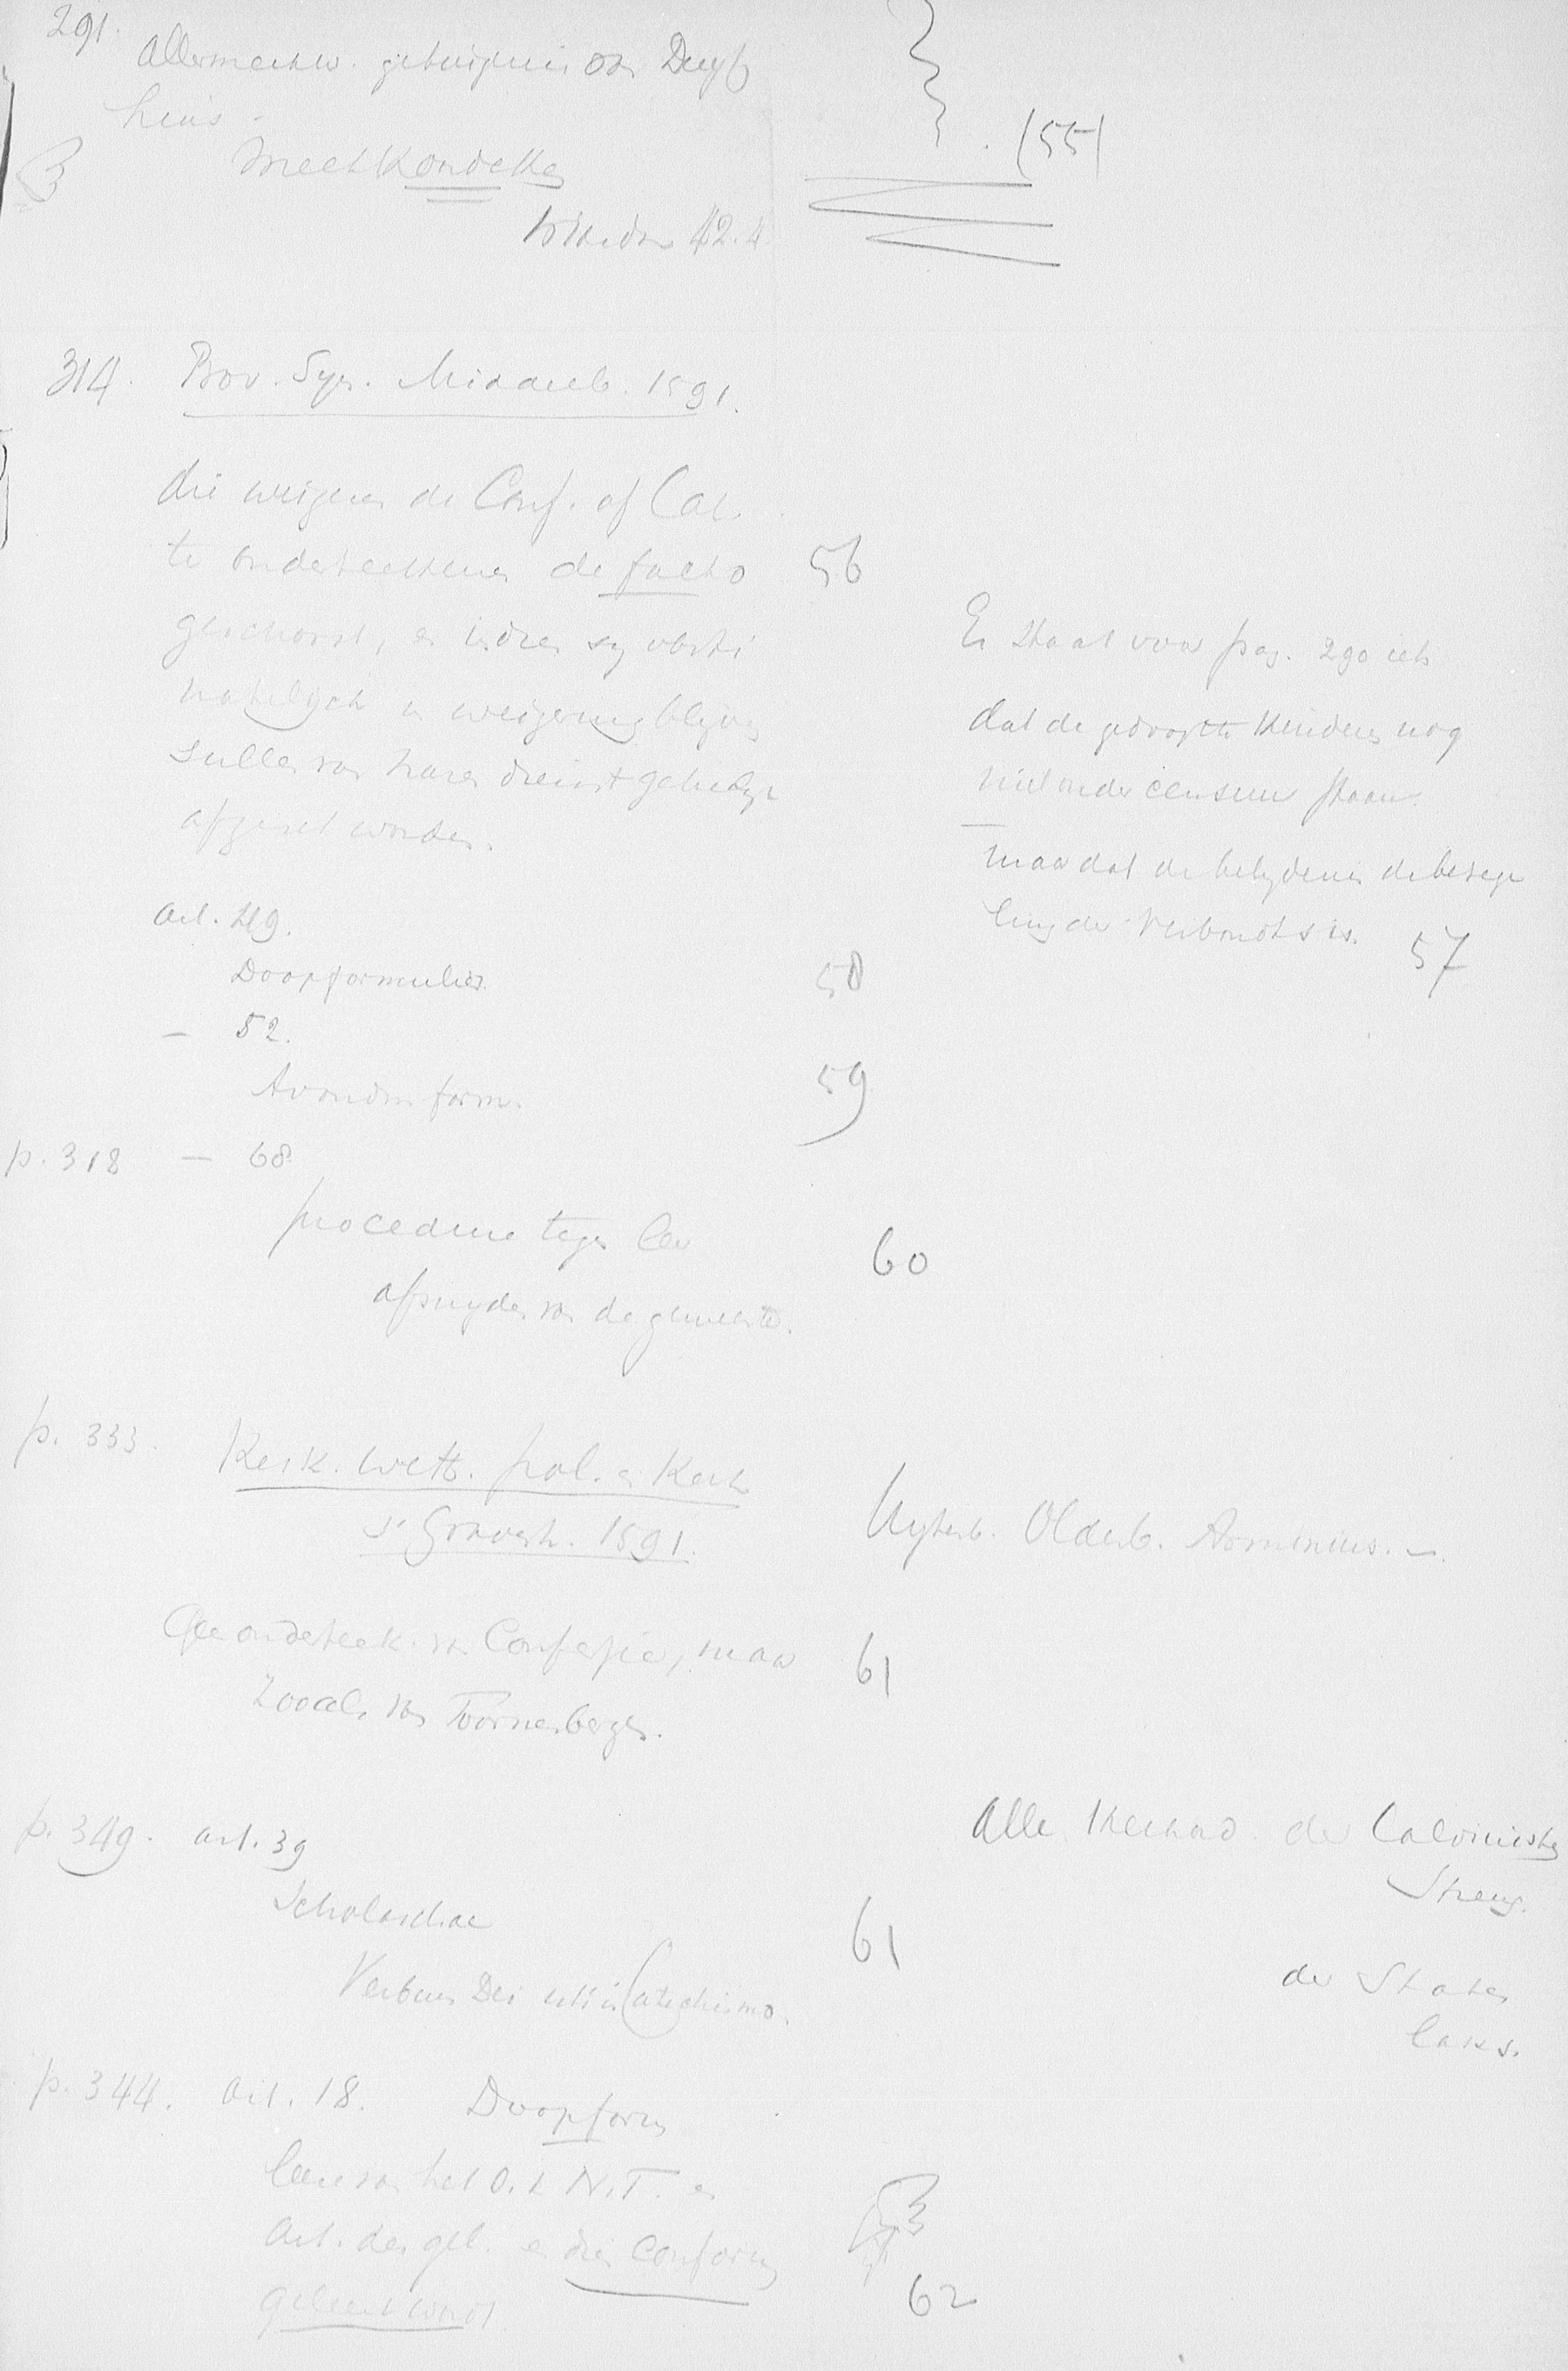 291.
Allermerkw. getuigenis van Duyf
huis.
(55)
42.4
314. Prov. Syn. Middelb. 1591.
die weigeren de Conf. of Cat.
te onderteekenen de facto
56
geschorst, en indien sy obsti
natelijck in weigering blijven
sullen van haren dienst gehelyc
afgeset worden.
Er staat voor pag. 290 iets
dat de gedoopte kinderen nog
niet onder censuur staan
maar dat de belydenis de besege
ling des Verbonds is. 57
Art. 49.
Doopformulier. 58
— 52.
Avondm form. 59
p. 318 — 68.
procedure tegen
60
afsnyden van de gemeente.
p. 333. Kerk. wett. pol. en Kerk
s' Gravenh. 1591.
Uytenb. Oldenb. Arminius. —
Geen onderteek. van Confessie, maar 61
zooals van Toornenbergen.
p. 349. art. 39
Scholarchae
61
Verbum Dei uti in Catechismo.
Alle Kerkord. der Calvinisten
Streng.
der Staten
laks.
p. 344. Art. 18. Doopform
leer van het O. & N.T. en
Art. des gel. en dien conform
geleert wordt.
62